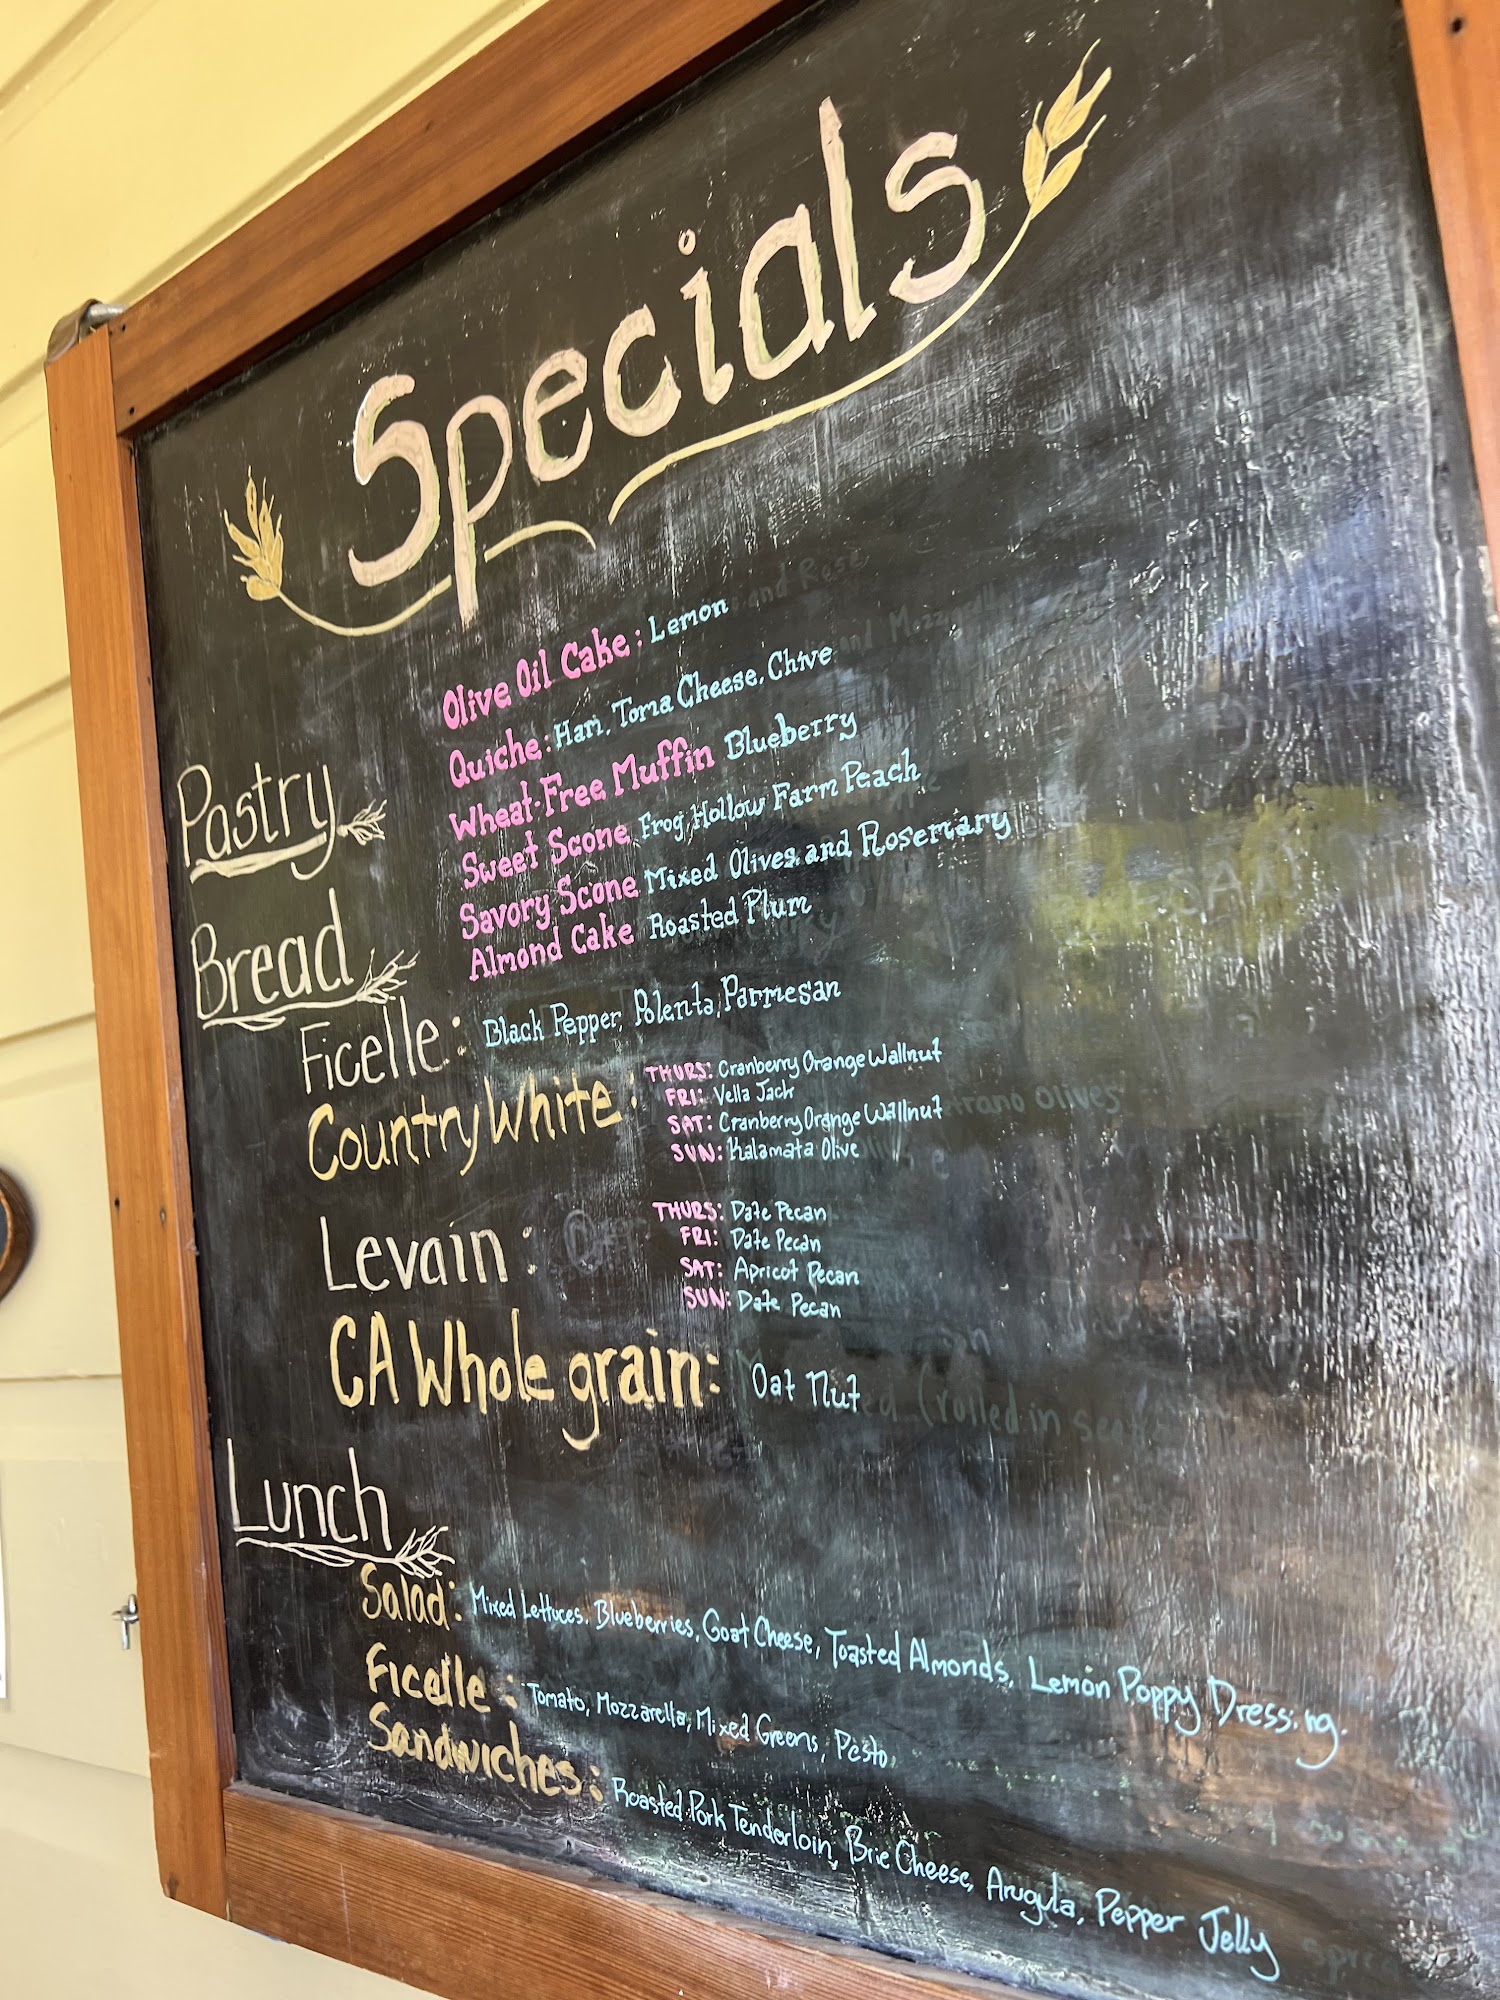 Specials
Pastry
Olive Oil Cake: Lemon
Quiche: Ham, Toma Cheese, Chive
Wheat-Free Muffin Blueberry
Sweet Scone Frog Hollow Farm Peach
Savory Scone Mixed Olives and Rosemary
Almond Cake Roasted Plum
Bread
Ficelle: Black Pepper, Polenta, Parmesan
Country White: THURS: Cranberry Orange Wallnut
FRI: Vella Jack
SAT: Cranberry Orange Wallnut
SUN: Kalamata Olive
Levain: THURS: Date Pecan
FRI: Date Pecan
SAT: Apricot Pecan
SUN: Date Pecan
CA Whole grain: Oat Nut
Lunch
Salad: Mixed Lettuces. Blueberries, Goat Cheese, Toasted Almonds, Lemon Poppy Dressing.
Ficelle: Tomato, Mozzarella, Mixed Greens, Pesto
Sandwiches: Roasted Pork Tenderloin, Brie Cheese, Arugula, Pepper Jelly